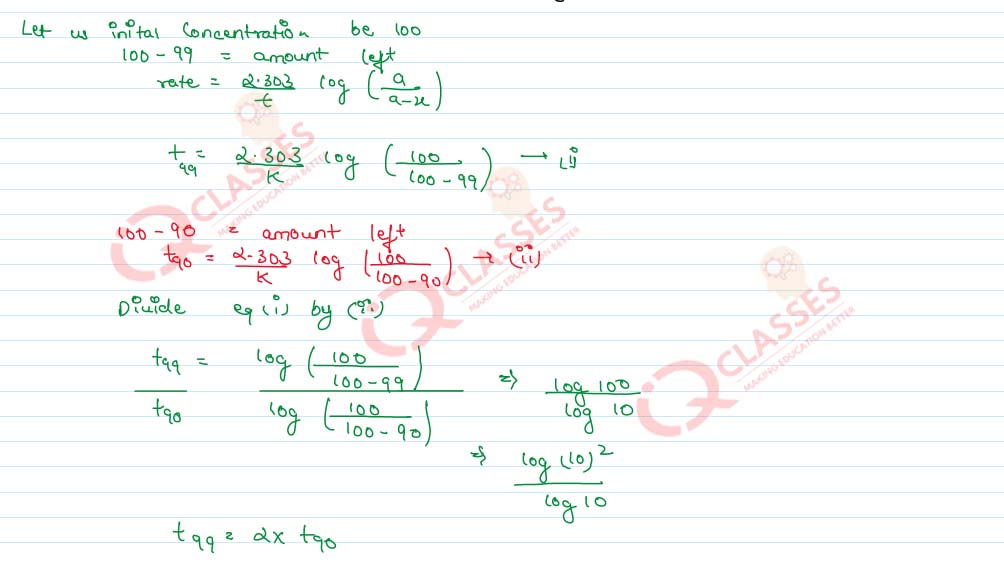 Let us inital Concentration be 100
100 - 99 = amount left
rate = 2.303/t log (a/a-x)
t99 = 2.303/K log (100/100-99) → (i)
100 - 90 = amount left
t90 = 2.303/K log (100/100-90) → (ii)
Divide eq (i) by (ii)
t99/t90 = log (100/100-99) / log (100/100-90) ⇒ log 100/log 10
⇒ log (10)²/log 10
t99 = 2x t90
CLASSES
MAKING EDUCATION BETTER
CLASSES
MAKING EDUCATION BETTER
CLASSES
MAKING EDUCATION BETTER